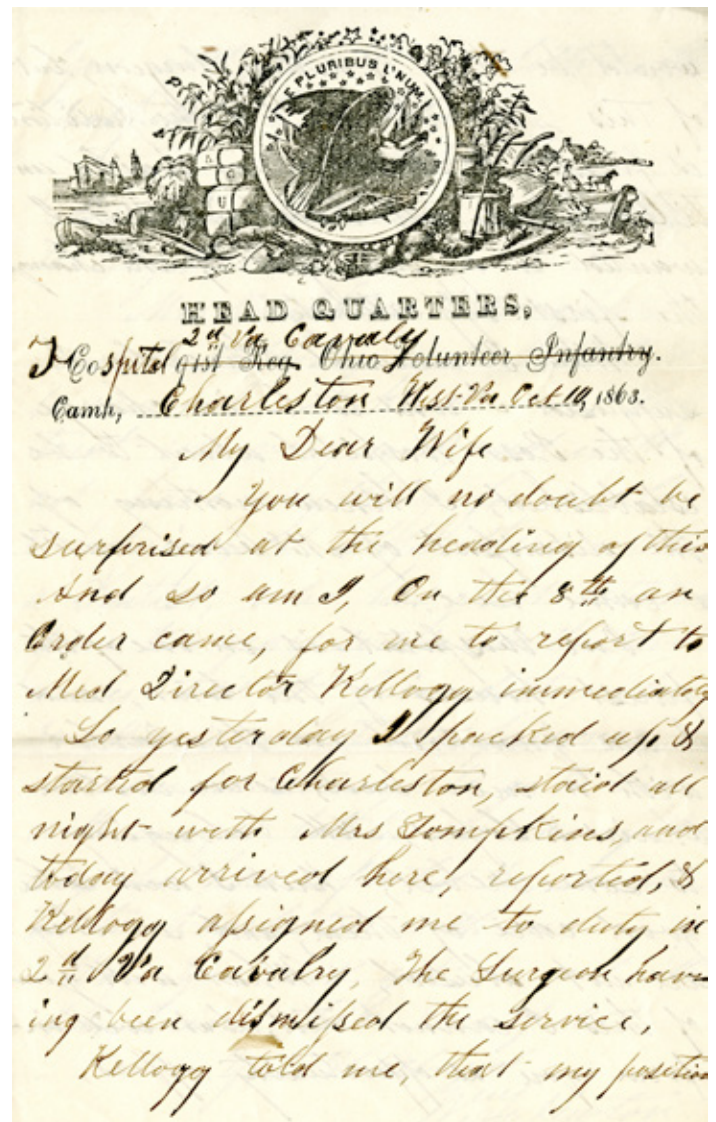 E PLURIBUS UNUM
HEAD QUARTERS,
2d Va Cavalry
Hospital 91st Reg. Ohio Volunteer Infantry.
Camp, Charleston West Va Oct 10, 1863.
My Dear Wife
You will no doubt be
surprised at the heading of this
And so am I, On the 8th an
Order came, for me to report to
Med Director Kellogg immediately
So yesterday I packed up &
started for Charleston, staid all
night with Mrs Tompkins, and
today arrived here, reported, &
Kellogg assigned me to duty in
2d Va Cavalry, The Surgeon hav-
ing been dismissed the service,
Kellogg told me, that my position